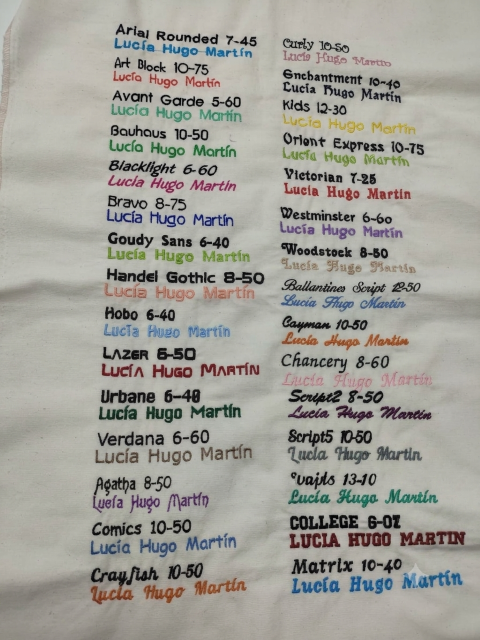 Arial Rounded 7-45
Lucía Hugo Martín
Art Block 10-75
Lucía Hugo Martín
Avant Garde 5-60
Lucía Hugo Martín
Bauhaus 10-50
Lucía Hugo Martín
Blacklight 6-60
Lucía Hugo Martín
Bravo 8-75
Lucía Hugo Martín
Goudy Sans 6-40
Lucía Hugo Martín
Handel Gothic 8-50
Lucía Hugo Martín
Hobo 6-40
Lucía Hugo Martín
LAZER 6-50
LUCÍA HUGO MARTÍN
Urbane 6-40
Lucía Hugo Martín
Verdana 6-60
Lucía Hugo Martín
Agatha 8-50
Lucía Hugo Martín
Comics 10-50
Lucía Hugo Martín
Crayfish 10-50
Lucía Hugo Martín
Curly 10-50
Lucía Hugo Martín
Enchantment 10-40
Lucía Hugo Martín
Kids 12-30
Lucía Hugo Martín
Orient Express 10-75
Lucía Hugo Martín
Victorian 7-25
Lucía Hugo Martín
Westminster 6-60
Lucía Hugo Martín
Woodstock 8-50
Lucía Hugo Martín
Ballantines Script 12-50
Lucía Hugo Martín
Cayman 10-50
Lucía Hugo Martín
Chancery 8-60
Lucía Hugo Martín
Script2 8-50
Lucía Hugo Martín
Script5 10-50
Lucía Hugo Martín
13-10
Lucía Hugo Martín
COLLEGE 6-07
LUCIA HUGO MARTIN
Matrix 10-40
Lucía Hugo Martín